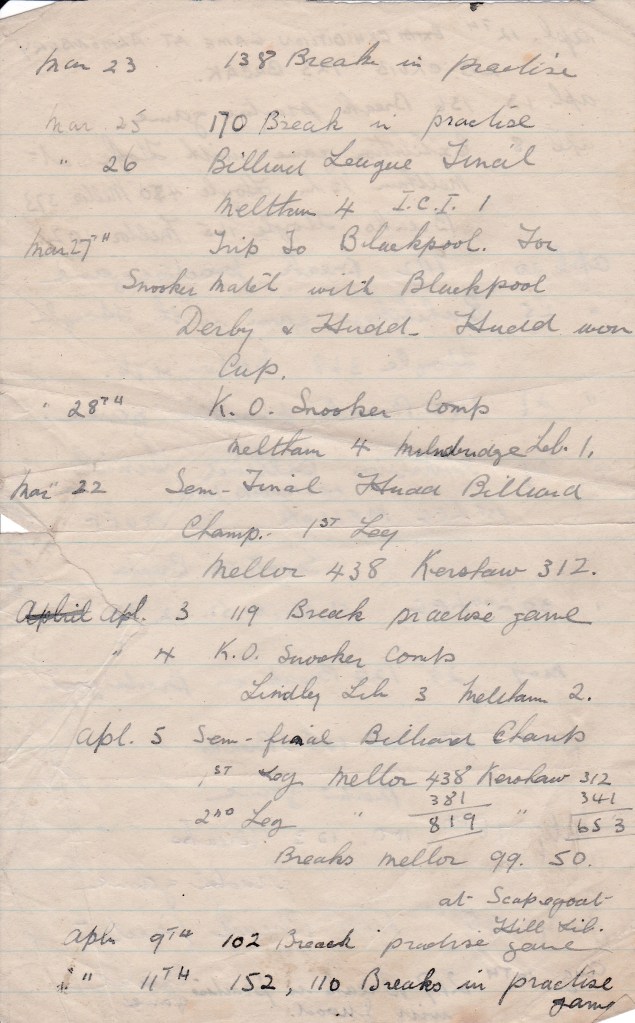 Mar 23 138 Break in practise
Mar 25 170 Break in practise
" 26 Billiard League Final
Meltham 4 I.C.I. 1
Mar 27TH Trip To Blackpool. For
Snooker Match with Blackpool
Derby & Hudd. Hudd won
Cup.
" 28TH K.O. Snooker Comp
Meltham 4 Milnsbridge Lib. 1.
Mar 22 Sem-Final Hudd Billiard
Champ. 1ST Leg
Mellor 438 Kershaw 312.
Apl. 3 119 Break practise game
" 4 K.O. Snooker Comp
Lindley Lib 3 Meltham 2.
Apl. 5 Sem-final Billiard Champ
1ST Leg Mellor 438 Kershaw 312
2ND Leg " 381 " 341
819 653
Breaks Mellor 99. 50.
at Scapegoat
Hill Lib.
Apl 9TH 102 Break practise game
" 11TH 152, 110 Breaks in practise
game